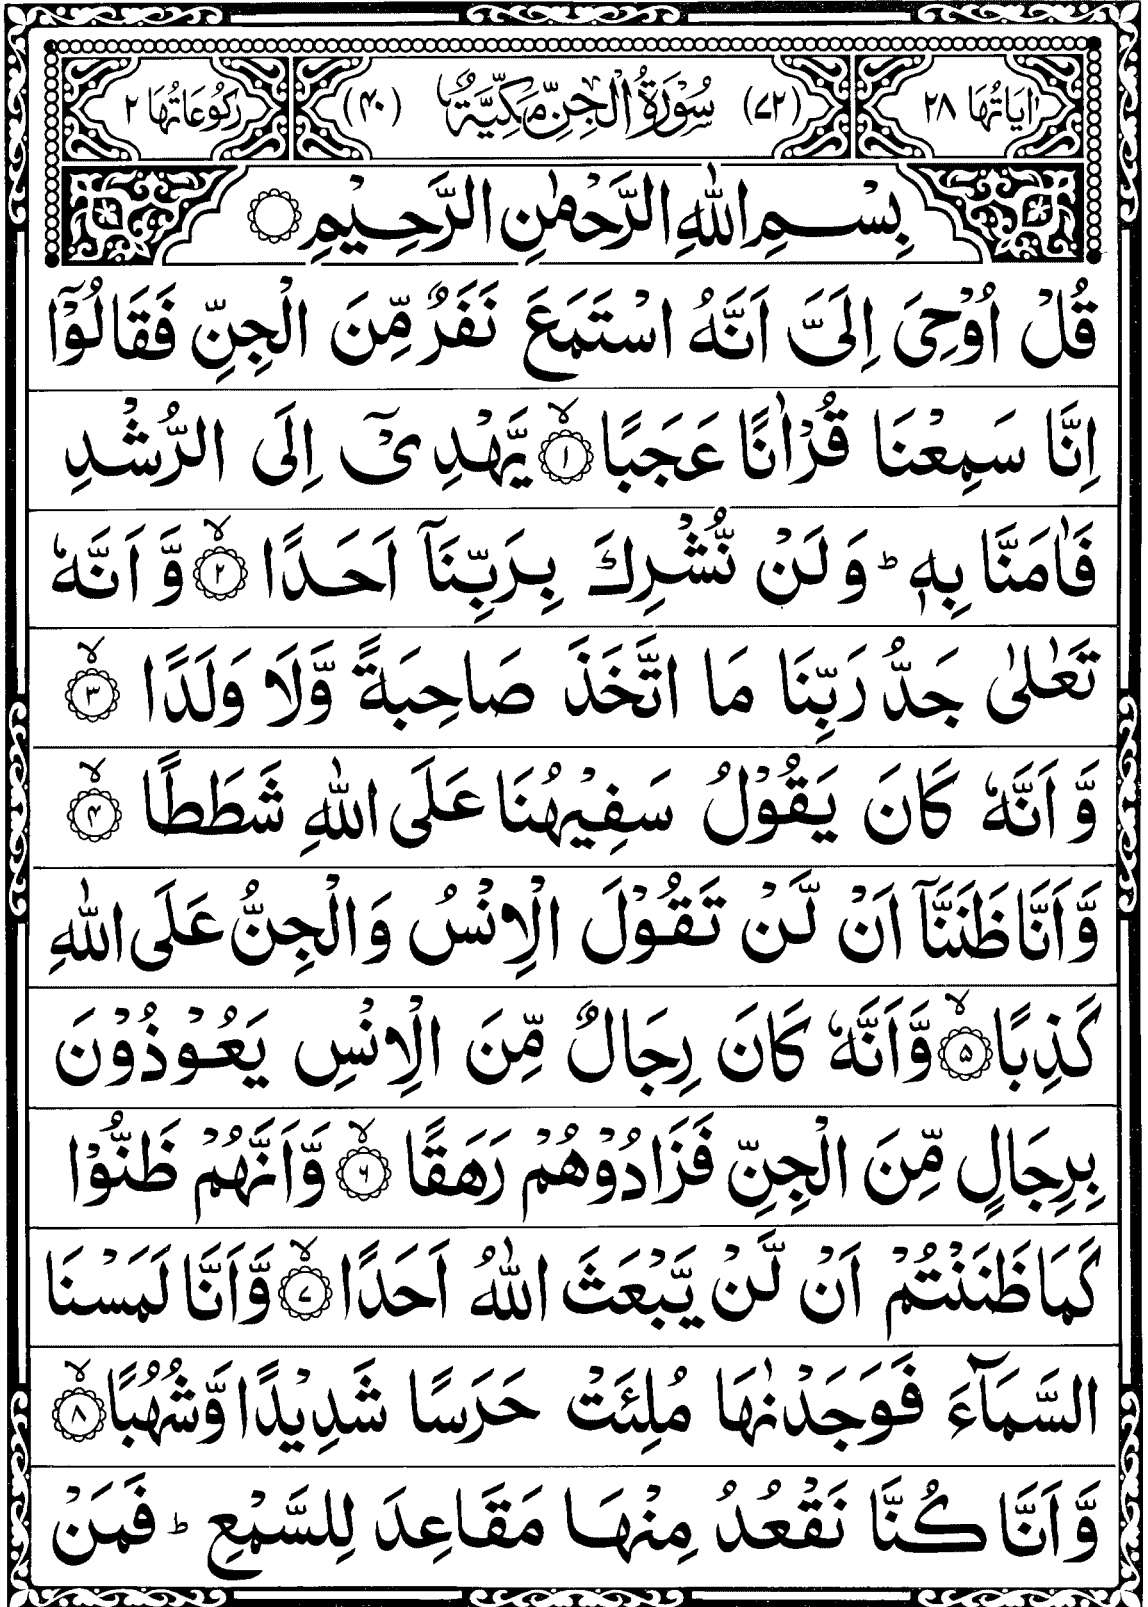 اٰيَاتُهَا ٢٨ (٧٢) سُوْرَةُ الْجِنِّ مَكِّيَّةٌ (٤٠) رُكُوْعَاتُهَا ٢
بِسْمِ اللّٰهِ الرَّحْمٰنِ الرَّحِيْمِ ۝
قُلْ اُوْحِىَ اِلَىَّ اَنَّهُ اسْتَمَعَ نَفَرٌ مِّنَ الْجِنِّ فَقَالُوْٓا
اِنَّا سَمِعْنَا قُرْاٰنًا عَجَبًا ۙ﴿١﴾ يَّهْدِىْٓ اِلَى الرُّشْدِ
فَاٰمَنَّا بِهٖ ؕ وَلَنْ نُّشْرِكَ بِرَبِّنَآ اَحَدًا ۙ﴿٢﴾ وَّاَنَّهٗ
تَعٰلٰى جَدُّ رَبِّنَا مَا اتَّخَذَ صَاحِبَةً وَّلَا وَلَدًا ۙ﴿٣﴾
وَّاَنَّهٗ كَانَ يَقُوْلُ سَفِيْهُنَا عَلَى اللّٰهِ شَطَطًا ۙ﴿٤﴾
وَّاَنَّا ظَنَنَّآ اَنْ لَّنْ تَقُوْلَ الْاِنْسُ وَالْجِنُّ عَلَى اللّٰهِ
كَذِبًا ۙ﴿٥﴾ وَّاَنَّهٗ كَانَ رِجَالٌ مِّنَ الْاِنْسِ يَعُوْذُوْنَ
بِرِجَالٍ مِّنَ الْجِنِّ فَزَادُوْهُمْ رَهَقًا ۙ﴿٦﴾ وَّاَنَّهُمْ ظَنُّوْا
كَمَا ظَنَنْتُمْ اَنْ لَّنْ يَّبْعَثَ اللّٰهُ اَحَدًا ۙ﴿٧﴾ وَّاَنَّا لَمَسْنَا
السَّمَآءَ فَوَجَدْنٰهَا مُلِئَتْ حَرَسًا شَدِيْدًا وَّشُهُبًا ۙ﴿٨﴾
وَّاَنَّا كُنَّا نَقْعُدُ مِنْهَا مَقَاعِدَ لِلسَّمْعِ ؕ فَمَنْ